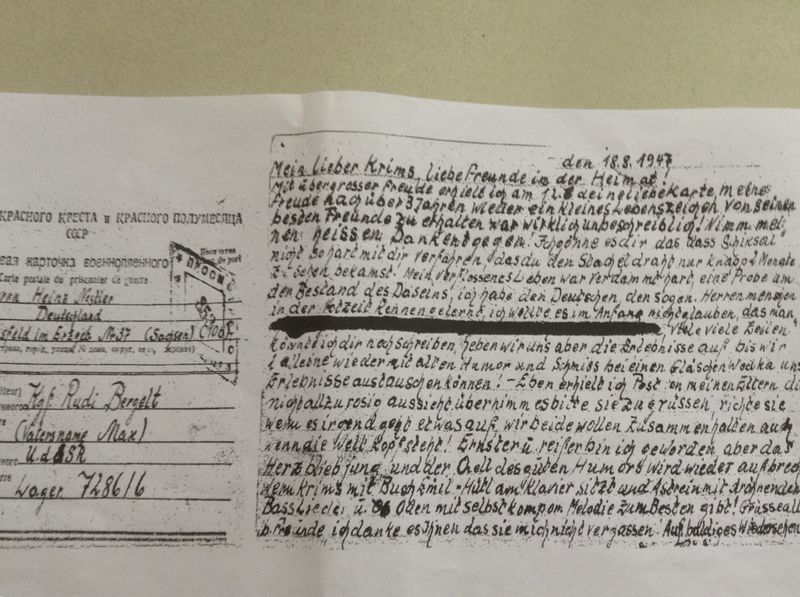 КРАСНОГО КРЕСТА и КРАСНОГО ПОЛУМЕСЯЦА
СССР
карточка военнопленного
Carte postale du prisonnier de guerre
Heinz
Deutschland
im Erzgeb № 37 (Sachsen)
Kgf Rudi Bergelt
(Vatersname Max)
UdSSR
Lager 7286/6
den 18.8.1947
Mein lieber Krims, liebe Freunde in der Heimat!
Mit übergrosser Freude erhielt ich am deine liebe Karte, meine
Freude nach über 3 Jahren wieder ein kleines Lebenszeichen von seinen
besten Freunde zu erhalten war wirklich unbeschreiblich! Nimm mei-
nen heissen Dank entgegen! Ich gönne es dir das dass Schiksal
nicht so hart mit dir verfahren, das du den Stacheldraht nur knapp 2 Monate
zu sehen bekamst! Mein verflossenes Leben war verdammt hart, eine Probe um
den Bestand des Daseins, ich habe den Deutschen, den sogen. Herrenmenschen
in der Notzeit kennen gelernt, ich wollte es im Anfang nicht glauben, das man
Viele viele Zeilen
könnte ich dir noch schreiben, heben wir uns aber die Erlebnisse auf bis wir
alleine wieder mit alten Humor und Schmiss bei einen Gläschen Wodka uns
Erlebnisse austauschen können! - Eben erhielt ich Post von meinen Eltern di
nicht allzu rosig aussieht übernimm es bitte sie zu grüssen, richte sie
wenn es irgend geht etwas auf, wir beide wollen zusammenhalten auch
wenn die Welt Kopf steht! Ernster u. reifer bin ich geworden aber das
Herz blieb jung und der Quell des guten Humors wird wieder aufbrech
wenn Krims mit Buch Emil - Hütl am Klavier sitzt und Astrein mit dröhnenden
Bass Lieder u. Oden mit selbst kompom Melodie zum Besten gibt! Grüsse all
b. Freunde ich danke es Ihnen das sie mich nicht vergassen! Auf baldiges Wiedersehen